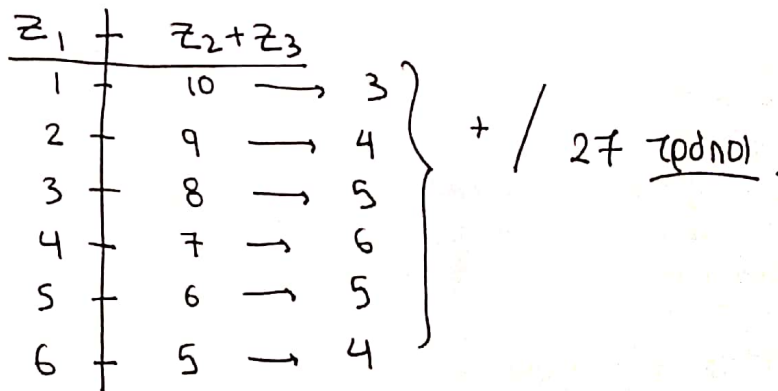 Z₁ + Z₂+Z₃
1 + 10 → 3
2 + 9 → 4
3 + 8 → 5
4 + 7 → 6
5 + 6 → 5
6 + 5 → 4
+ / 27 τρόποι.